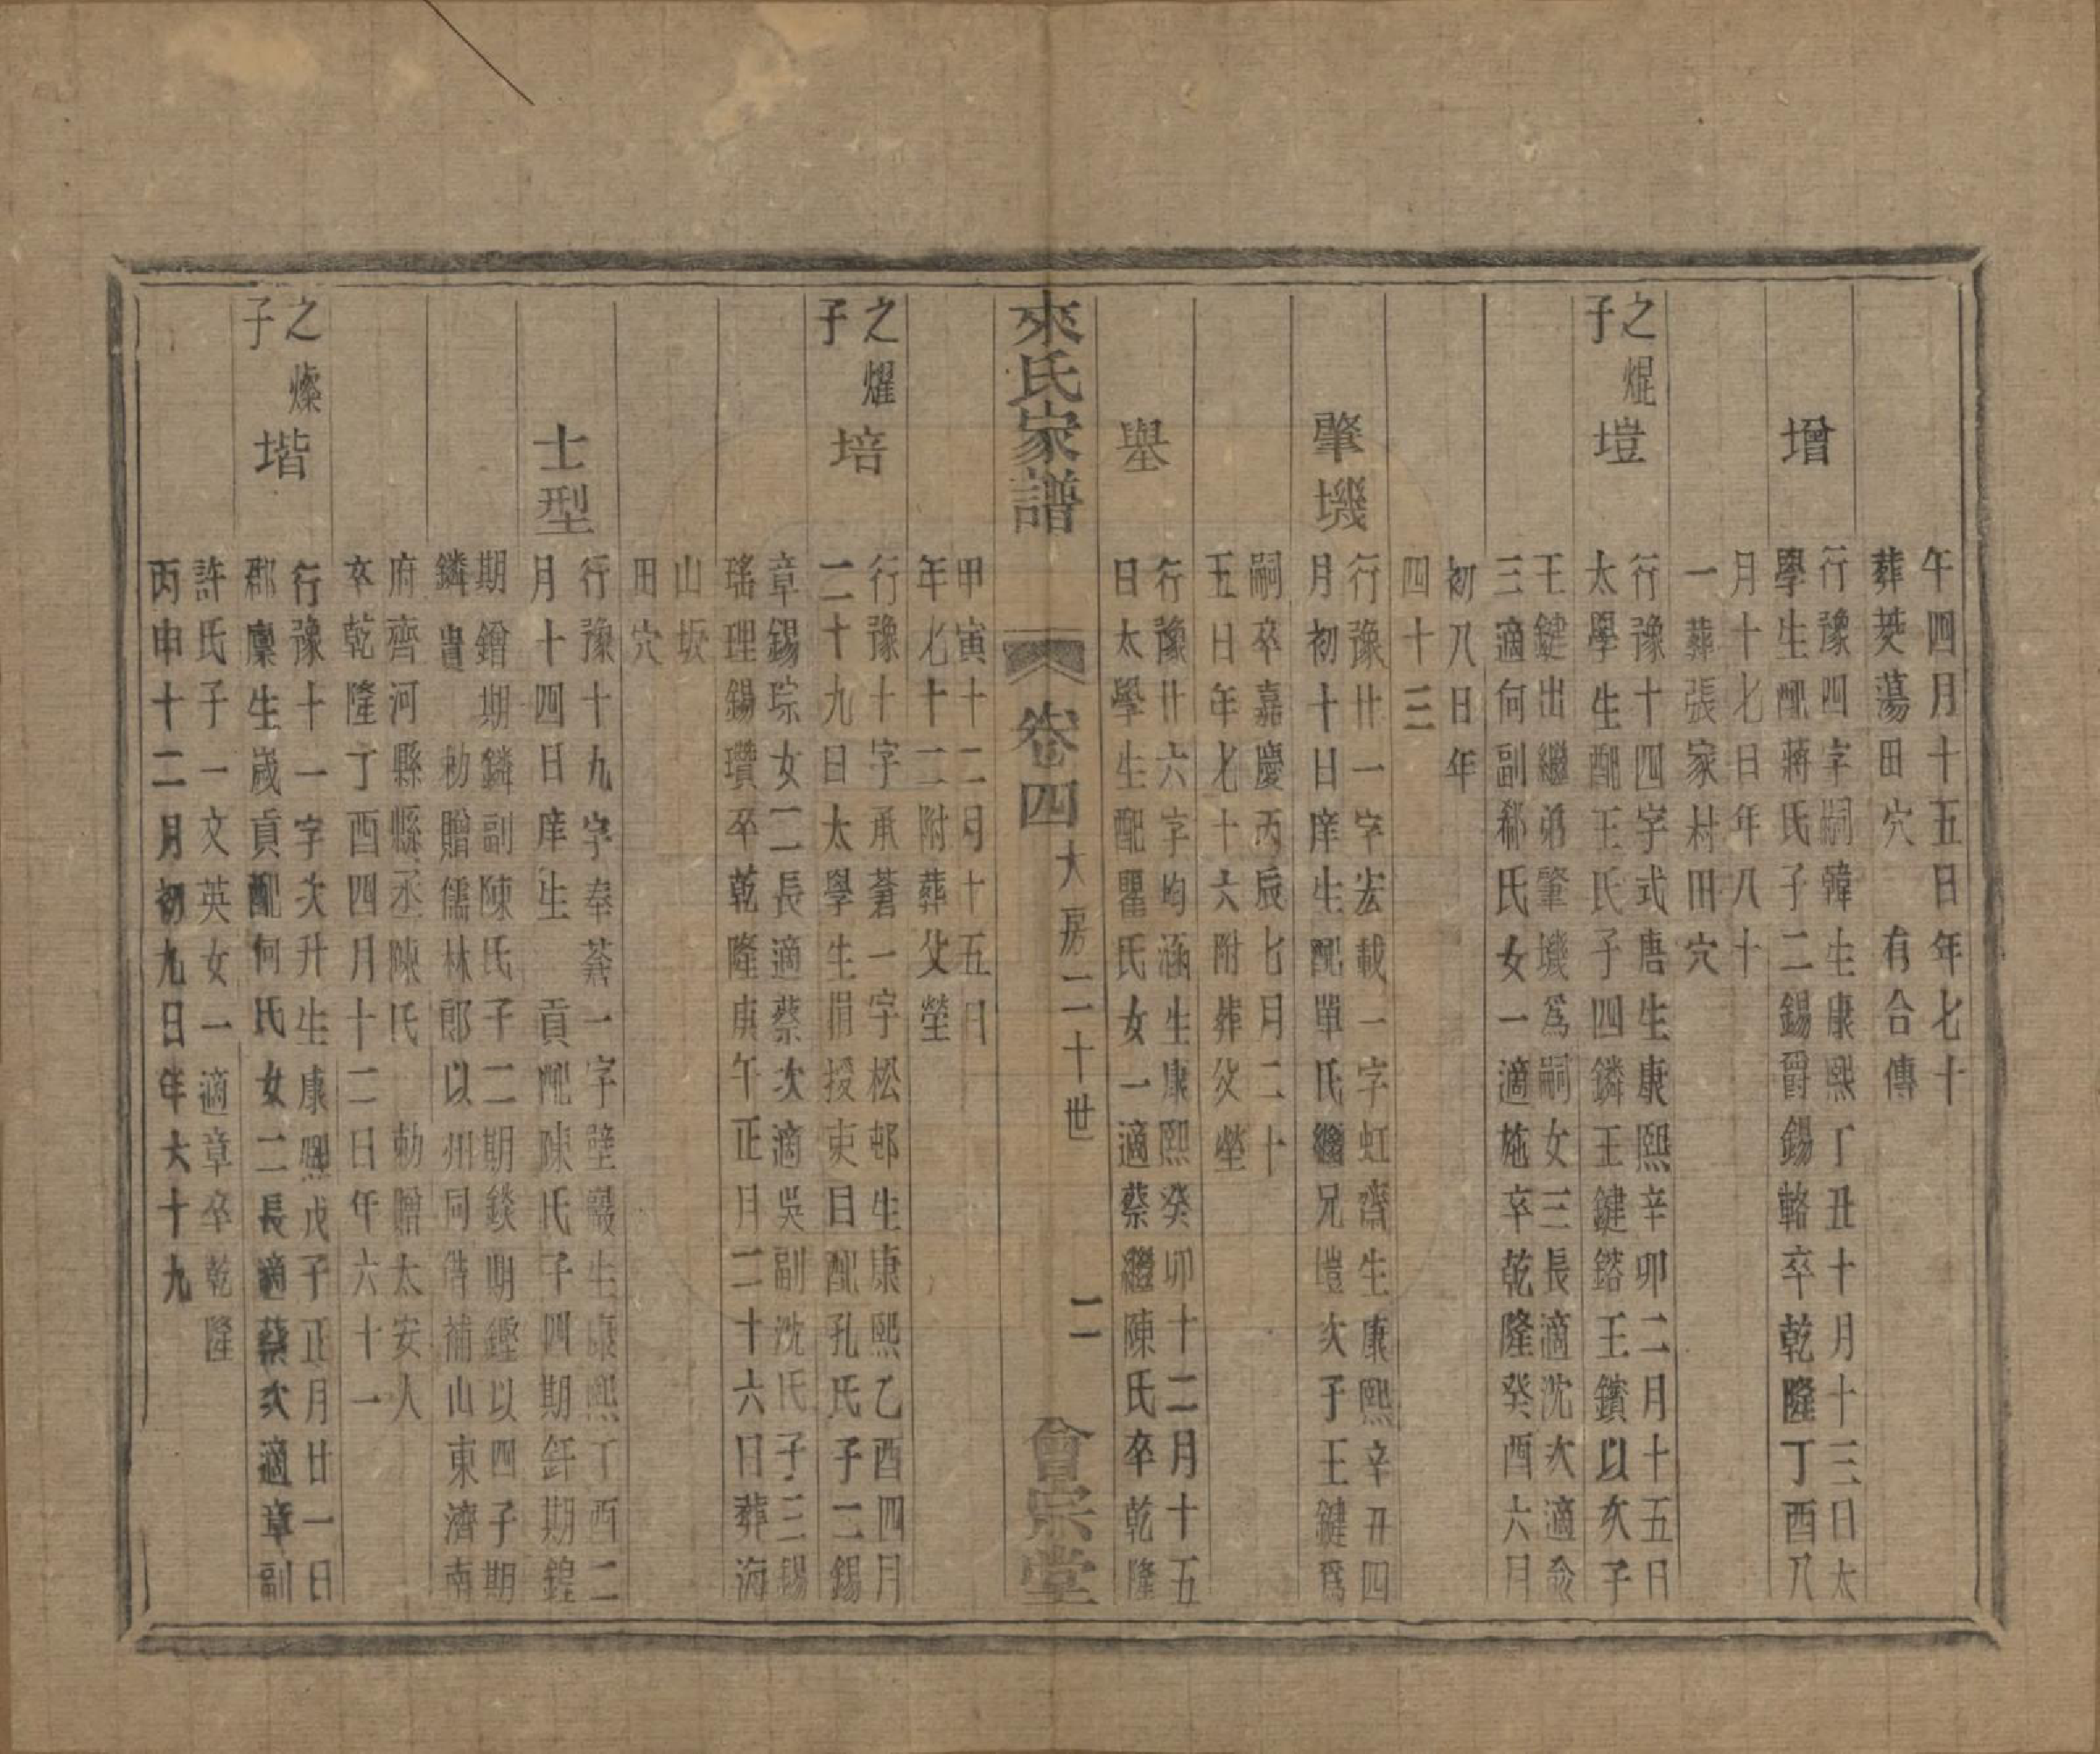 午四月十五日年七十
葬茭蕩田穴　有合傳
增
行豫四字嗣韓生康熙丁丑十月十三日太
學生配蔣氏子二錫爵錫輅卒乾隆丁酉八
月十七日年八十
一葬張家村田穴
之焜子
塏
行豫十四字式唐生康熙辛卯二月十五日
太學生配王氏子四鏻王鍵鎝王鑌以次子
王鍵出繼弟肇墢爲嗣女三長適沈次適俞
三適何副郗氏女一適施卒乾隆癸酉六月
初八日年
四十三
肇墢
行豫廿一字宏載一字虹齋生康熙辛丑四
月初十日庠生配單氏繼兄塏次子王鍵爲
嗣卒嘉慶丙辰七月二十
五日年七十六附葬父塋
壆
行豫廿六字均涵生康熙癸卯十二月十五
日太學生配瞿氏女一適蔡繼陳氏卒乾隆
來氏家譜
卷四大房二十世
二
會宗堂
甲寅十二月十五日
年七十二附葬父塋
之燿子
培
行豫十字承蒼一字松邨生康熙乙酉四月
二十九日太學生捐授吏目配孔氏子二錫
章錫琮女二長適蔡次適吳副沈氏子三錫
瑤理錫瓚卒乾隆庚午正月二十六日葬海
山坂
田穴
士型
行豫十九字奉莪一字壁巖生康熙丁酉二
月十四日庠生　貢配陳氏子四期釬期鍠
期鏳期鏻副陳氏子二期錟期鏗以四子期
鏻貴　勑贈儒林郎以州同待補山東濟南
府齊河縣縣丞陳氏　勑贈太安人
卒乾隆丁酉四月十二日年六十一
之燦子
堦
行豫十一字次升生康熙戊子正月廿一日
郡廩生歲貢配何氏女二長適蔡次適章副
許氏子一文英女一適章卒乾隆
丙申十二月初九日年六十九